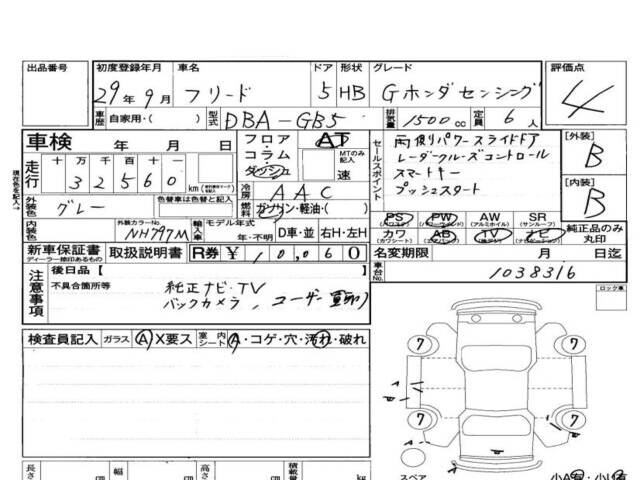 出品番号
初度登録年月 車名 ドア 形状 グレード 評価点
29年9月 フリード 5 HB Gホンダセンシング 4
車歴 自家用・( ) 型式 DBA-GB5 排気量 1500cc 定員 6人
車検 年 月 日
フロア・コラム・ダッシュ AT
MTのみ記入 速
セールスポイント
両側パワースライドドア
レーダークルーズコントロール
スマートキー
プッシュスタート
[外装] B
[内装] B
走行 十万千百十一
32560 km
冷房 AAC
外装色 グレー
色替車は色替と記入
燃料 ガソリン・軽油・( )
内装色
外装カラーNo. NH797M
輸入車 モデル年式 年・不明 D車・並 右H・左H
PS PW AW SR
(パワステ) (パワーウィンド) (アルミホイル) (サンルーフ)
カワ AB TV ナビ
(カワシート) (エアバッグ) (ナビゲーション)
純正品のみ丸印
新車保証書 取扱説明書 R券 ¥10,060
ディーラー捺印あるもの
名変期限 月 日迄
車台No. 1038316
注意事項
後日品[ ]
不具合箇所等
純正ナビ・TV
バックカメラ、
ロック車
検査員記入 ガラス A X要ス 室内 シート A・コゲ・穴・汚れ・破れ
7 7
7 7
A
スペア
長さ cm 幅 cm 高さ cm 積載量 kg
現在色を記入→